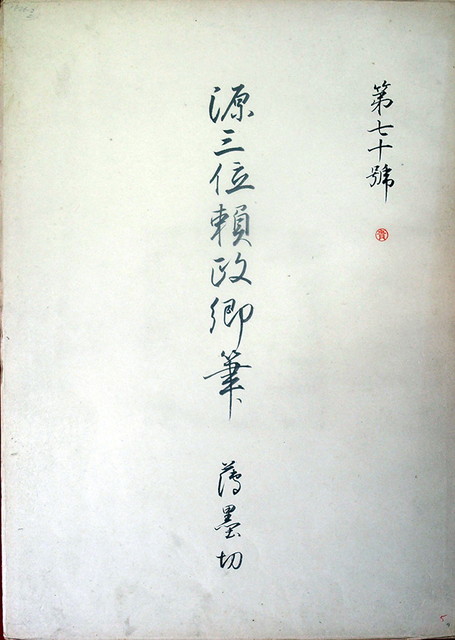 第七十號
源三位頼政卿筆 薄墨切